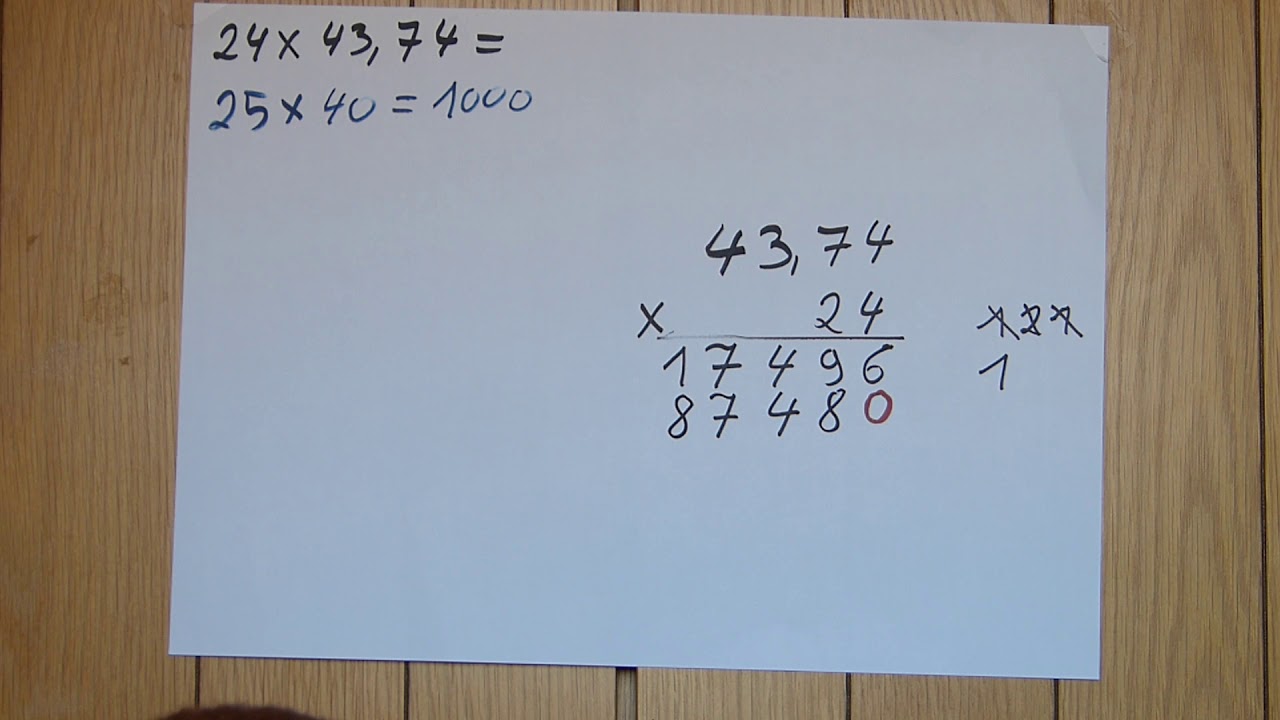 24 x 43,74 =
25 x 40 = 1000
43,74
x 24
17496
87480
1